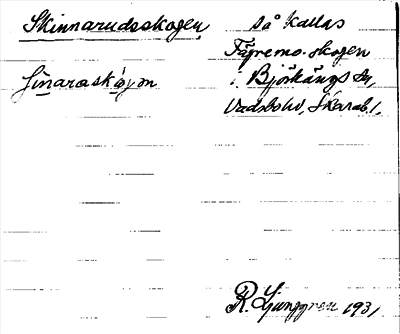 Skinnarudsskogen
så kallas
Fägremo-skogen
i Björkängs sn,
Vadsbohd, Skarab.l,
R. Ljunggren 1931